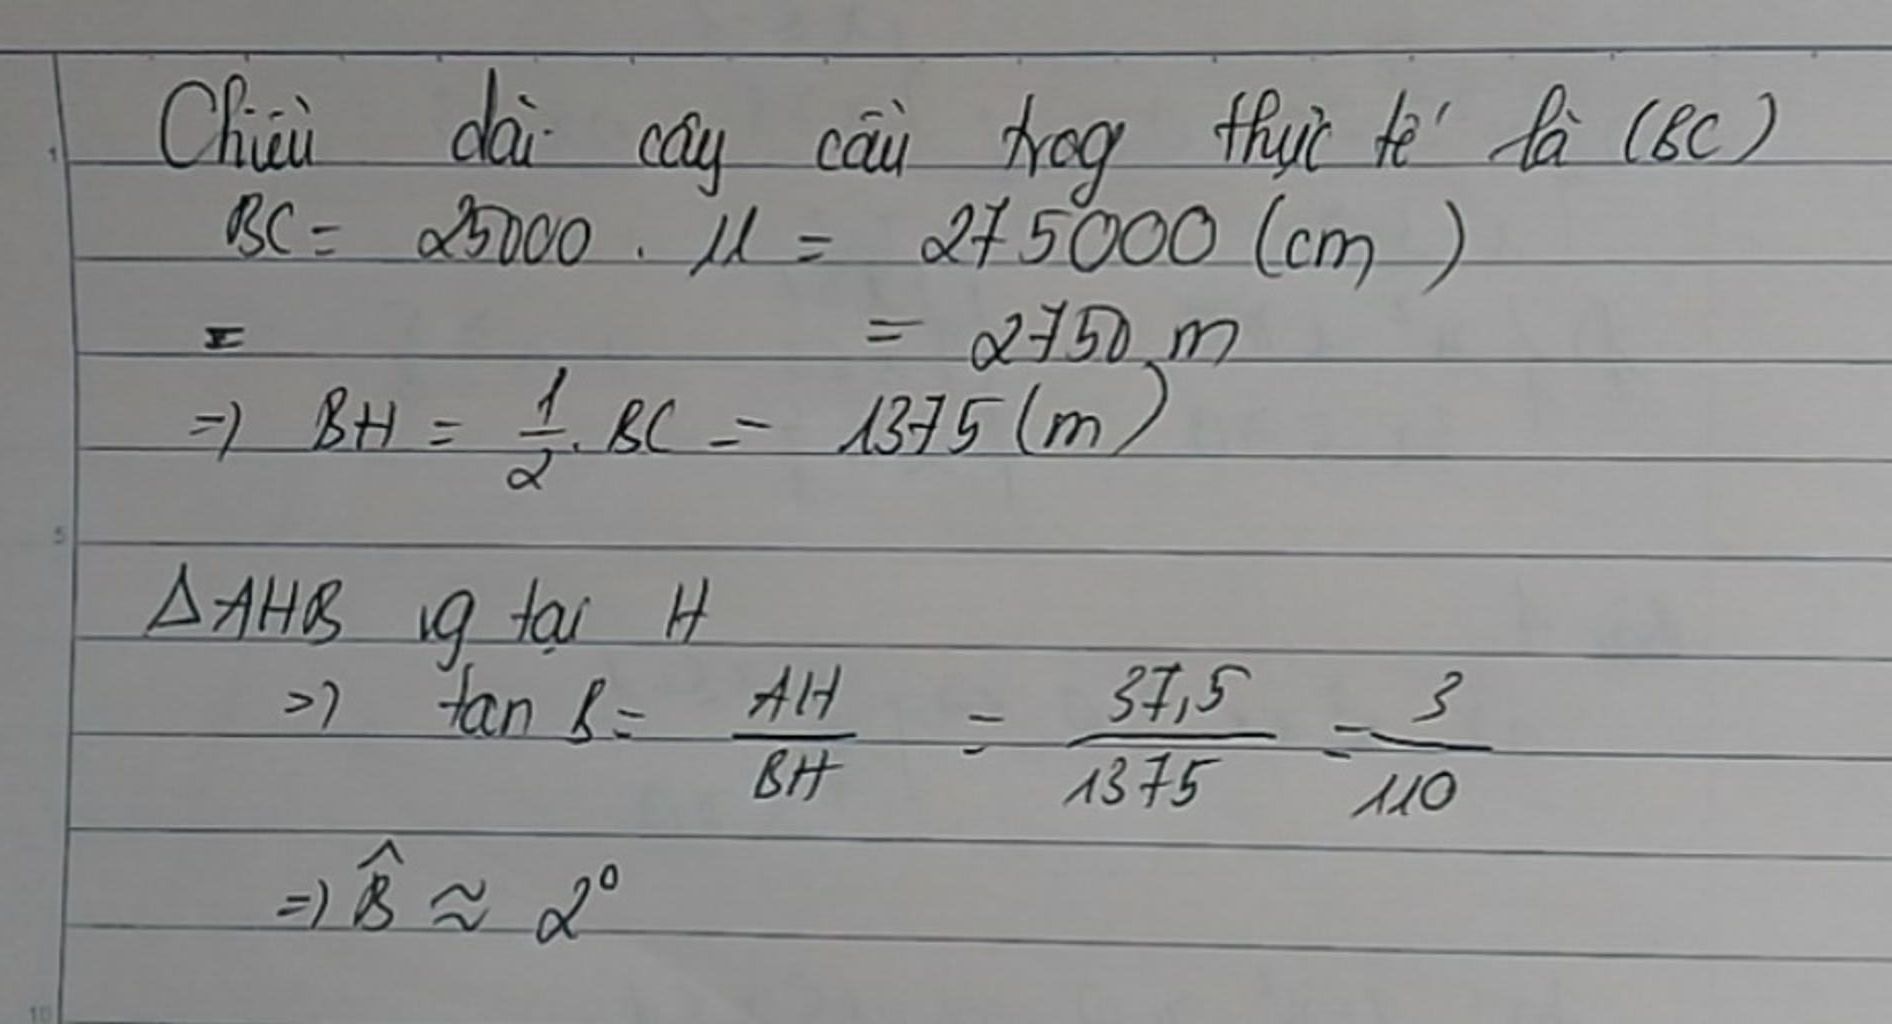 Chiều dài cây cầu trog thực tế là (BC)
BC = 25000 . 11 = 275000 (cm)
= = 2750 m
=) BH = 1/2 . BC = 1375 (m)
5
ΔAHB vg tại H
=) tan B = AH/BH = 37,5/1375 = 3/110
=) B̂ ≈ 2°
10